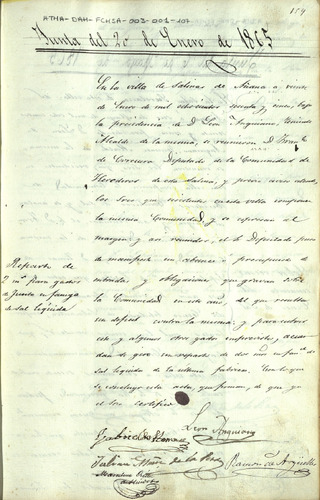 ATHA-DAH-FCHSA-003-001-107
159
Junta del 20 de Enero de 1865
En la villa de Salinas de Añana a veinte
de Enero de mil ochocientos sesenta y cinco bajo
la presidencia de D. Leon Anguiano, Teniente
Alcalde de la misma, se reunieron D.
de Diputado de la Comunidad de
Herederos de esta Salina, y previo
los Sres que residentes en esta villa componen
la misma Comunidad, y se espresan al
margen y asi reunidos, el Sr Diputado puso
de manifiesto un presupuesto de
entradas y obligaciones que gravan
la Comunidad en este año, del que resulta
un deficit contra la misma; y para cubrir
este y algunos otros gastos imprevistos, acuer
dan de que un reparto de dos mil
sal liquida de la ultima fabrica. Con lo que
se concluyo esta acta, que firman, de que yo
el Srio certifico
Reparto de
2 m. para gastos
de Junta en fanegas
de sal liquida
Leon Anguiano
Gabriel
Julian de la
Ramon de Argüelles